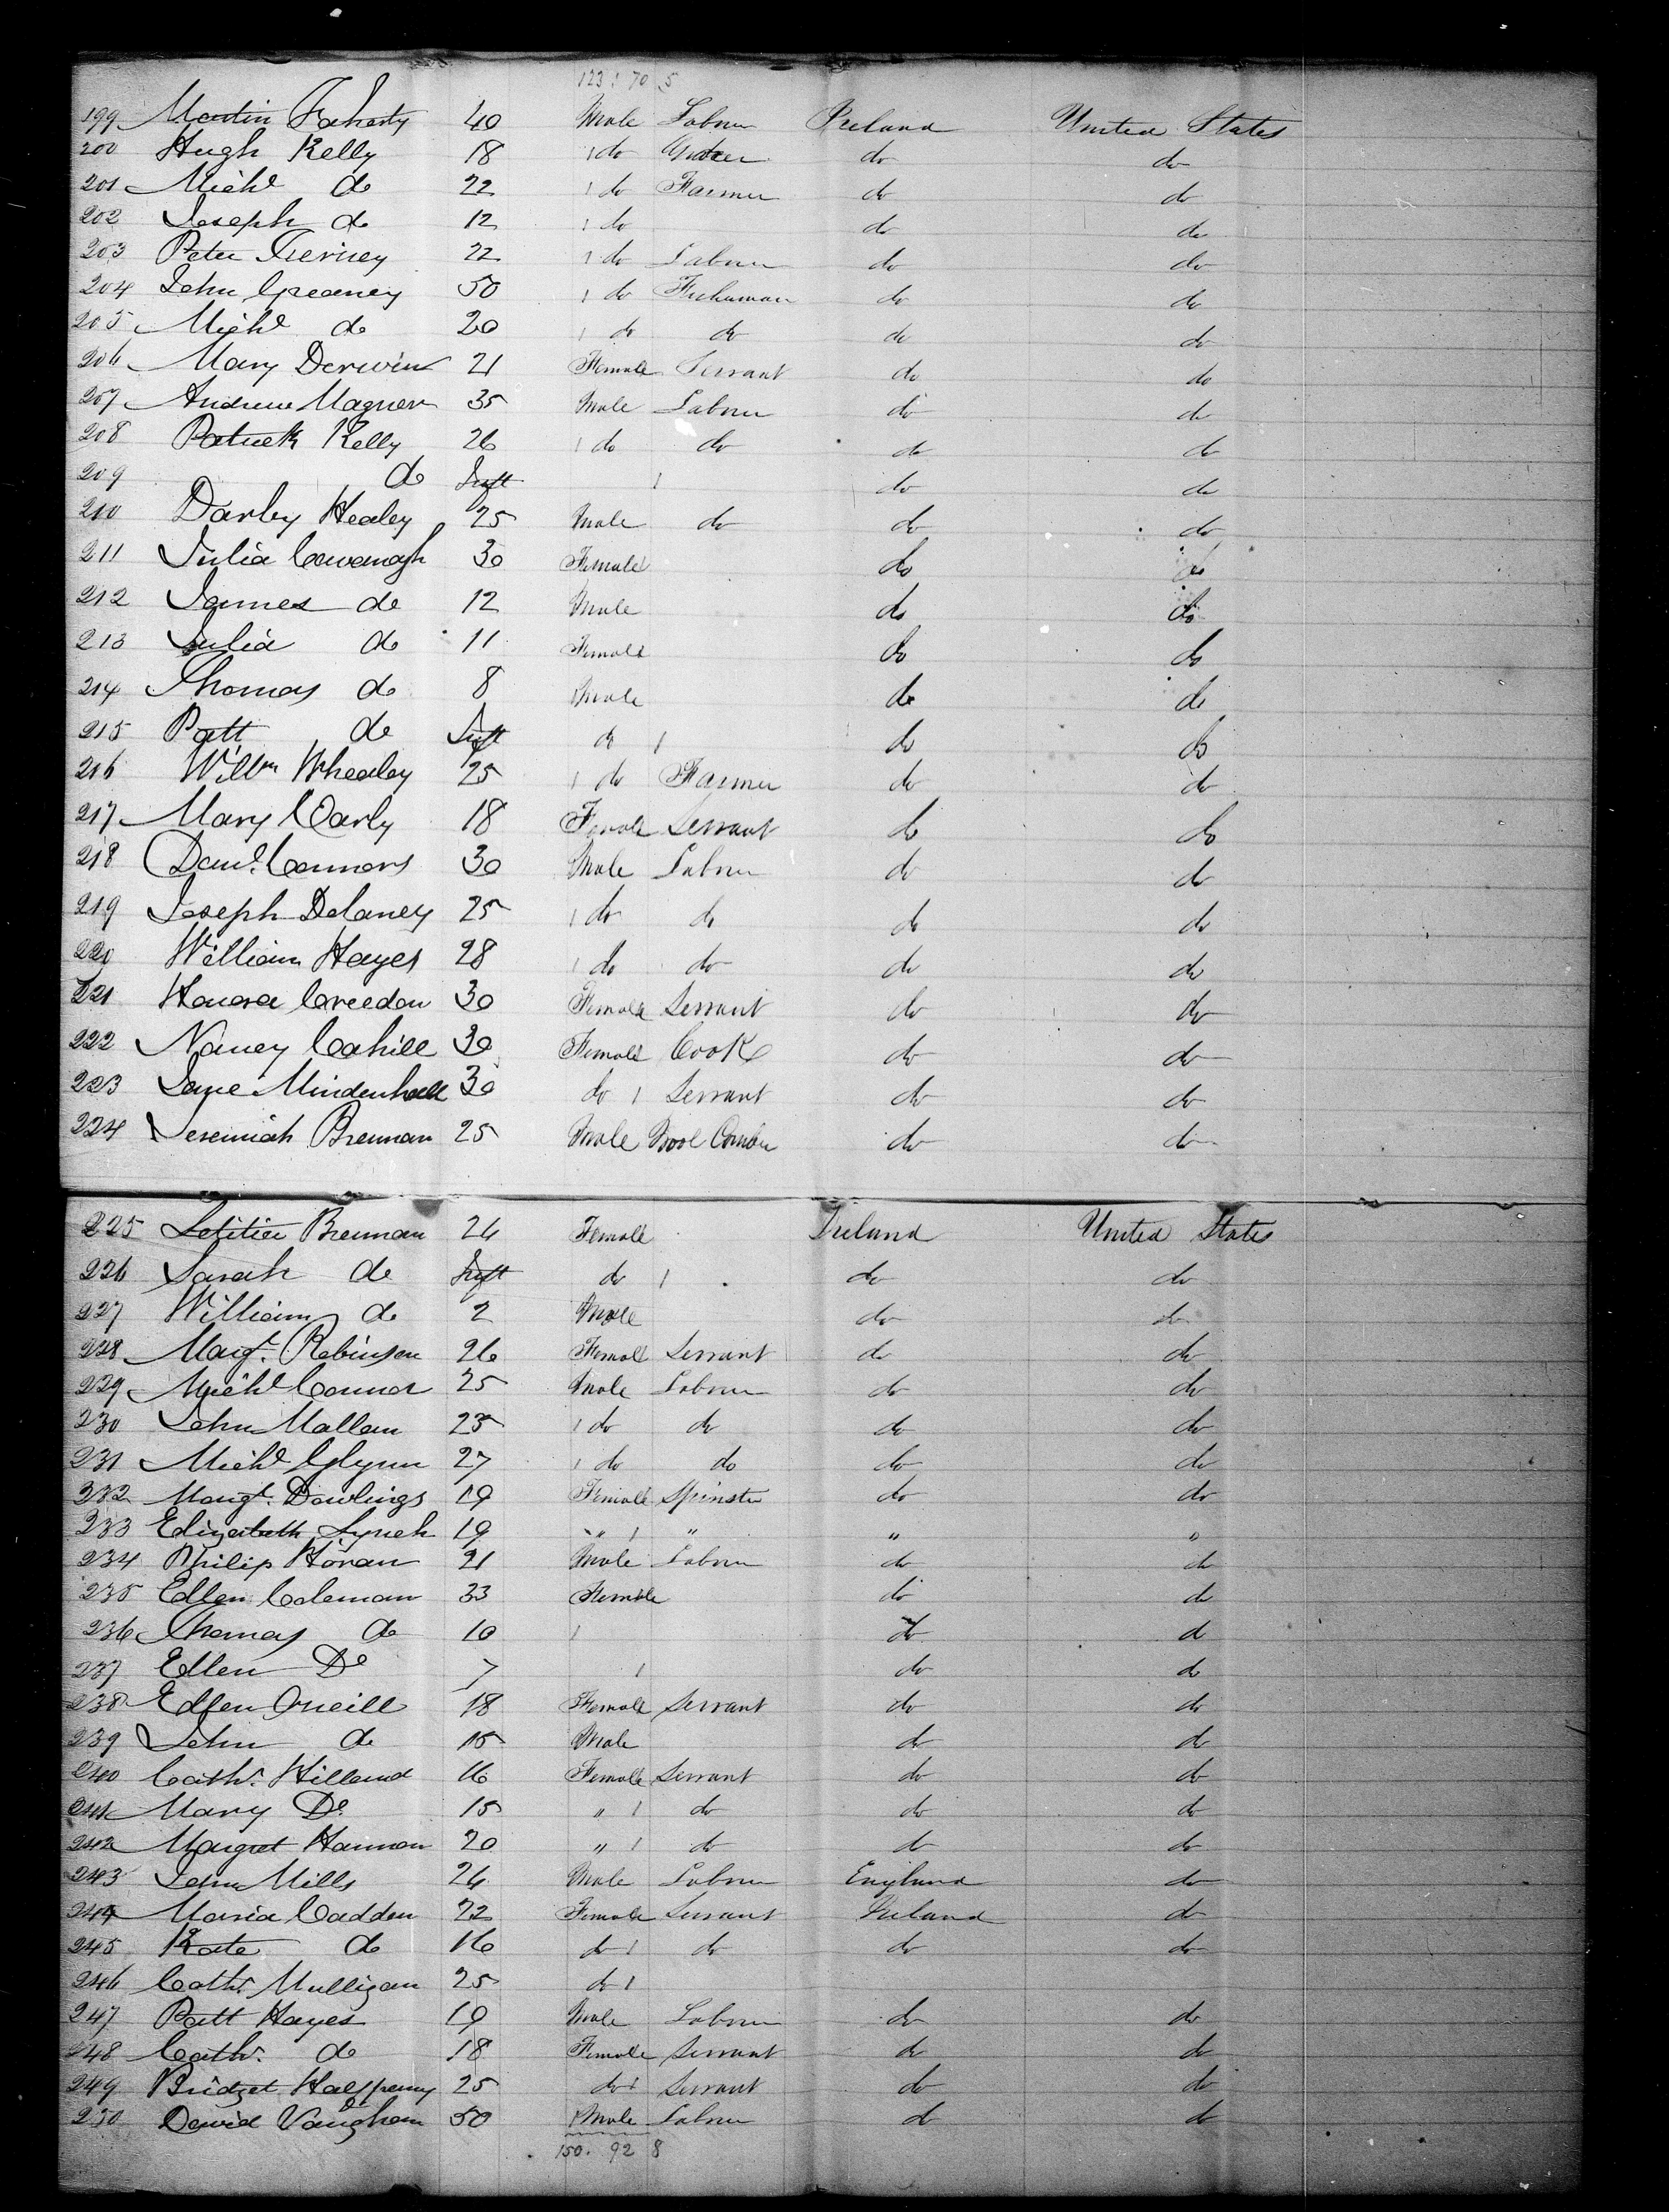 123 70 5
199 Martin Faherty 40 Male Labour Ireland United States
200 Hugh Kelly 18 do do do
201 Michl do 22 do Farmer do do
202 Joseph do 12 do do do
203 Peter Tierney 22 do Labour do do
204 John Greaney 50 do Fisherman do do
205 Michl do 20 do do do do
206 Mary Derwin 21 Female Servant do do
207 Andrew Magner 35 Male Labour do do
208 Patrick Kelly 26 do do do do
209 do Inft do do
210 Darby Healey 25 Male do do do
211 Julia Cavanagh 30 Female do do
212 James do 12 Male do do
213 Julia do 11 Female do do
214 Thomas do 8 Male do do
215 Patt do Inft do do do
216 Willm Whealey 25 do Farmer do do
217 Mary Carly 18 Female Servant do do
218 Danl. Connors 30 Male Labour do do
219 Joseph Delaney 25 do do do do
220 William Hayes 28 do do do do
221 Honora Creedon 30 Female Servant do do
222 Nancy Cahill 30 Female Cook do do
223 Jane Mindenhall 30 do Servant do do
224 Jeremiah Brennan 25 Male Wool Comber do do
225 Letitia Brennan 26 Female Ireland United States
226 Sarah do Inft do do do
227 William do 2 Male do do
228 Margt. Robinson 26 Female Servant do do
229 Michl Connor 25 Male Labour do do
230 John Mallan 25 do do do do
231 Michl Glynn 27 do do do do
232 Margt. Dowlings 19 Female Spinster do do
233 Elizabeth Lynch 19 " " " "
234 Philip Horan 21 Male Labour do do
235 Ellen Coleman 33 Female do do
236 Thomas do 10 do do
237 Ellen Do 7 do do
238 Ellen Oneill 18 Female Servant do do
239 John do 15 Male do do
240 Cathr. Hilland 16 Female Servant do do
241 Mary Do. 15 " do do do
242 Margret Hannon 20 " do do do
243 John Mills 26 Male Labour England do
244 Maria Cadden 22 Female Servant Ireland do
245 Kate do 16 do do do do
246 Cathr. Mulligan 25 do
247 Patt Hayes 19 Male Labour do do
248 Cathr. do 18 Female Servant do do
249 Bridget Halfpenny 25 do Servant do do
250 David Vaughan 50 Male Labour do do
150. 92 8